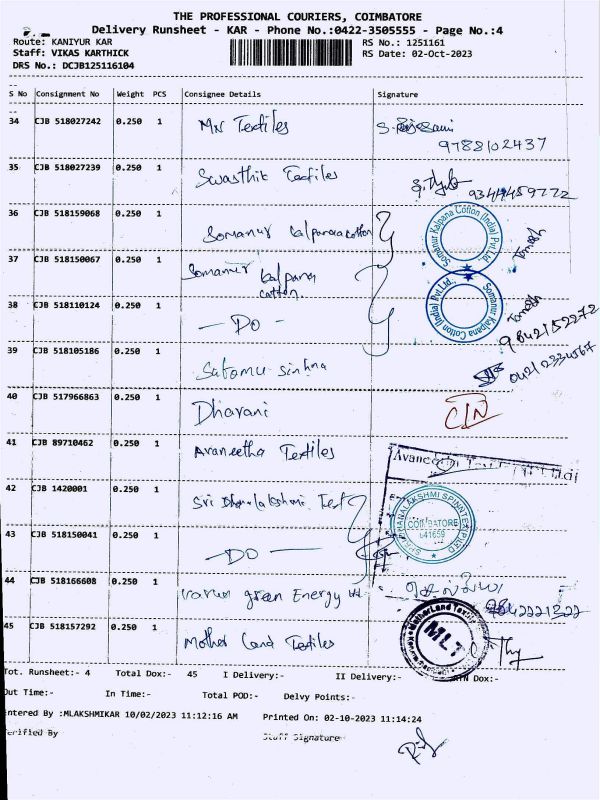 THE PROFESSIONAL COURIERS, COIMBATORE
Delivery Runsheet - KAR - Phone No.:0422-3505555 - Page No.:4
Route: KANIYUR KAR
RS No.: 1251161
Staff: VIKAS KARTHICK
RS Date: 02-Oct-2023
DRS No.: DCJB125116104
S No Consignment No Weight PCS Consignee Details Signature
34 CJB 518027242 0.250 1 MN Textiles
9788102437
35 CJB 518027239 0.250 1 Swasthik Textiles
9344459772
36 CJB 518159068 0.250 1 Somanur kalpana cotton
Somanur Kalpana Cotton (India) Pvt.Ltd.
37 CJB 518150067 0.250 1 Somanur kalpana
cotton.
Somanur Kalpana Cotton (India) Pvt.Ltd.,
38 CJB 518110124 0.250 1 — DO —
9842152272
39 CJB 518105186 0.250 1
0421 2334567
40 CJB 517966863 0.250 1 Dharani
41 CJB 89710462 0.250 1 Avaneetha Textiles
42 CJB 1420001 0.250 1 Sri Dhanalakshmi Text
SRI DHANALAKSHMI SPINNTEX
COIMBATORE
641659
43 CJB 518150041 0.250 1 — DO —
44 CJB 518166608 0.250 1 green Energy
9842221322
45 CJB 518157292 0.250 1 Mother Land Textiles
MotherLand Textile
MLT
Tot. Runsheet:- 4 Total Dox:- 45 I Delivery:- II Delivery:- Dox:-
Out Time:- In Time:- Total POD:- Delvy Points:-
Entered By :MLAKSHMIKAR 10/02/2023 11:12:16 AM Printed On: 02-10-2023 11:14:24
Verified By Staff Signature